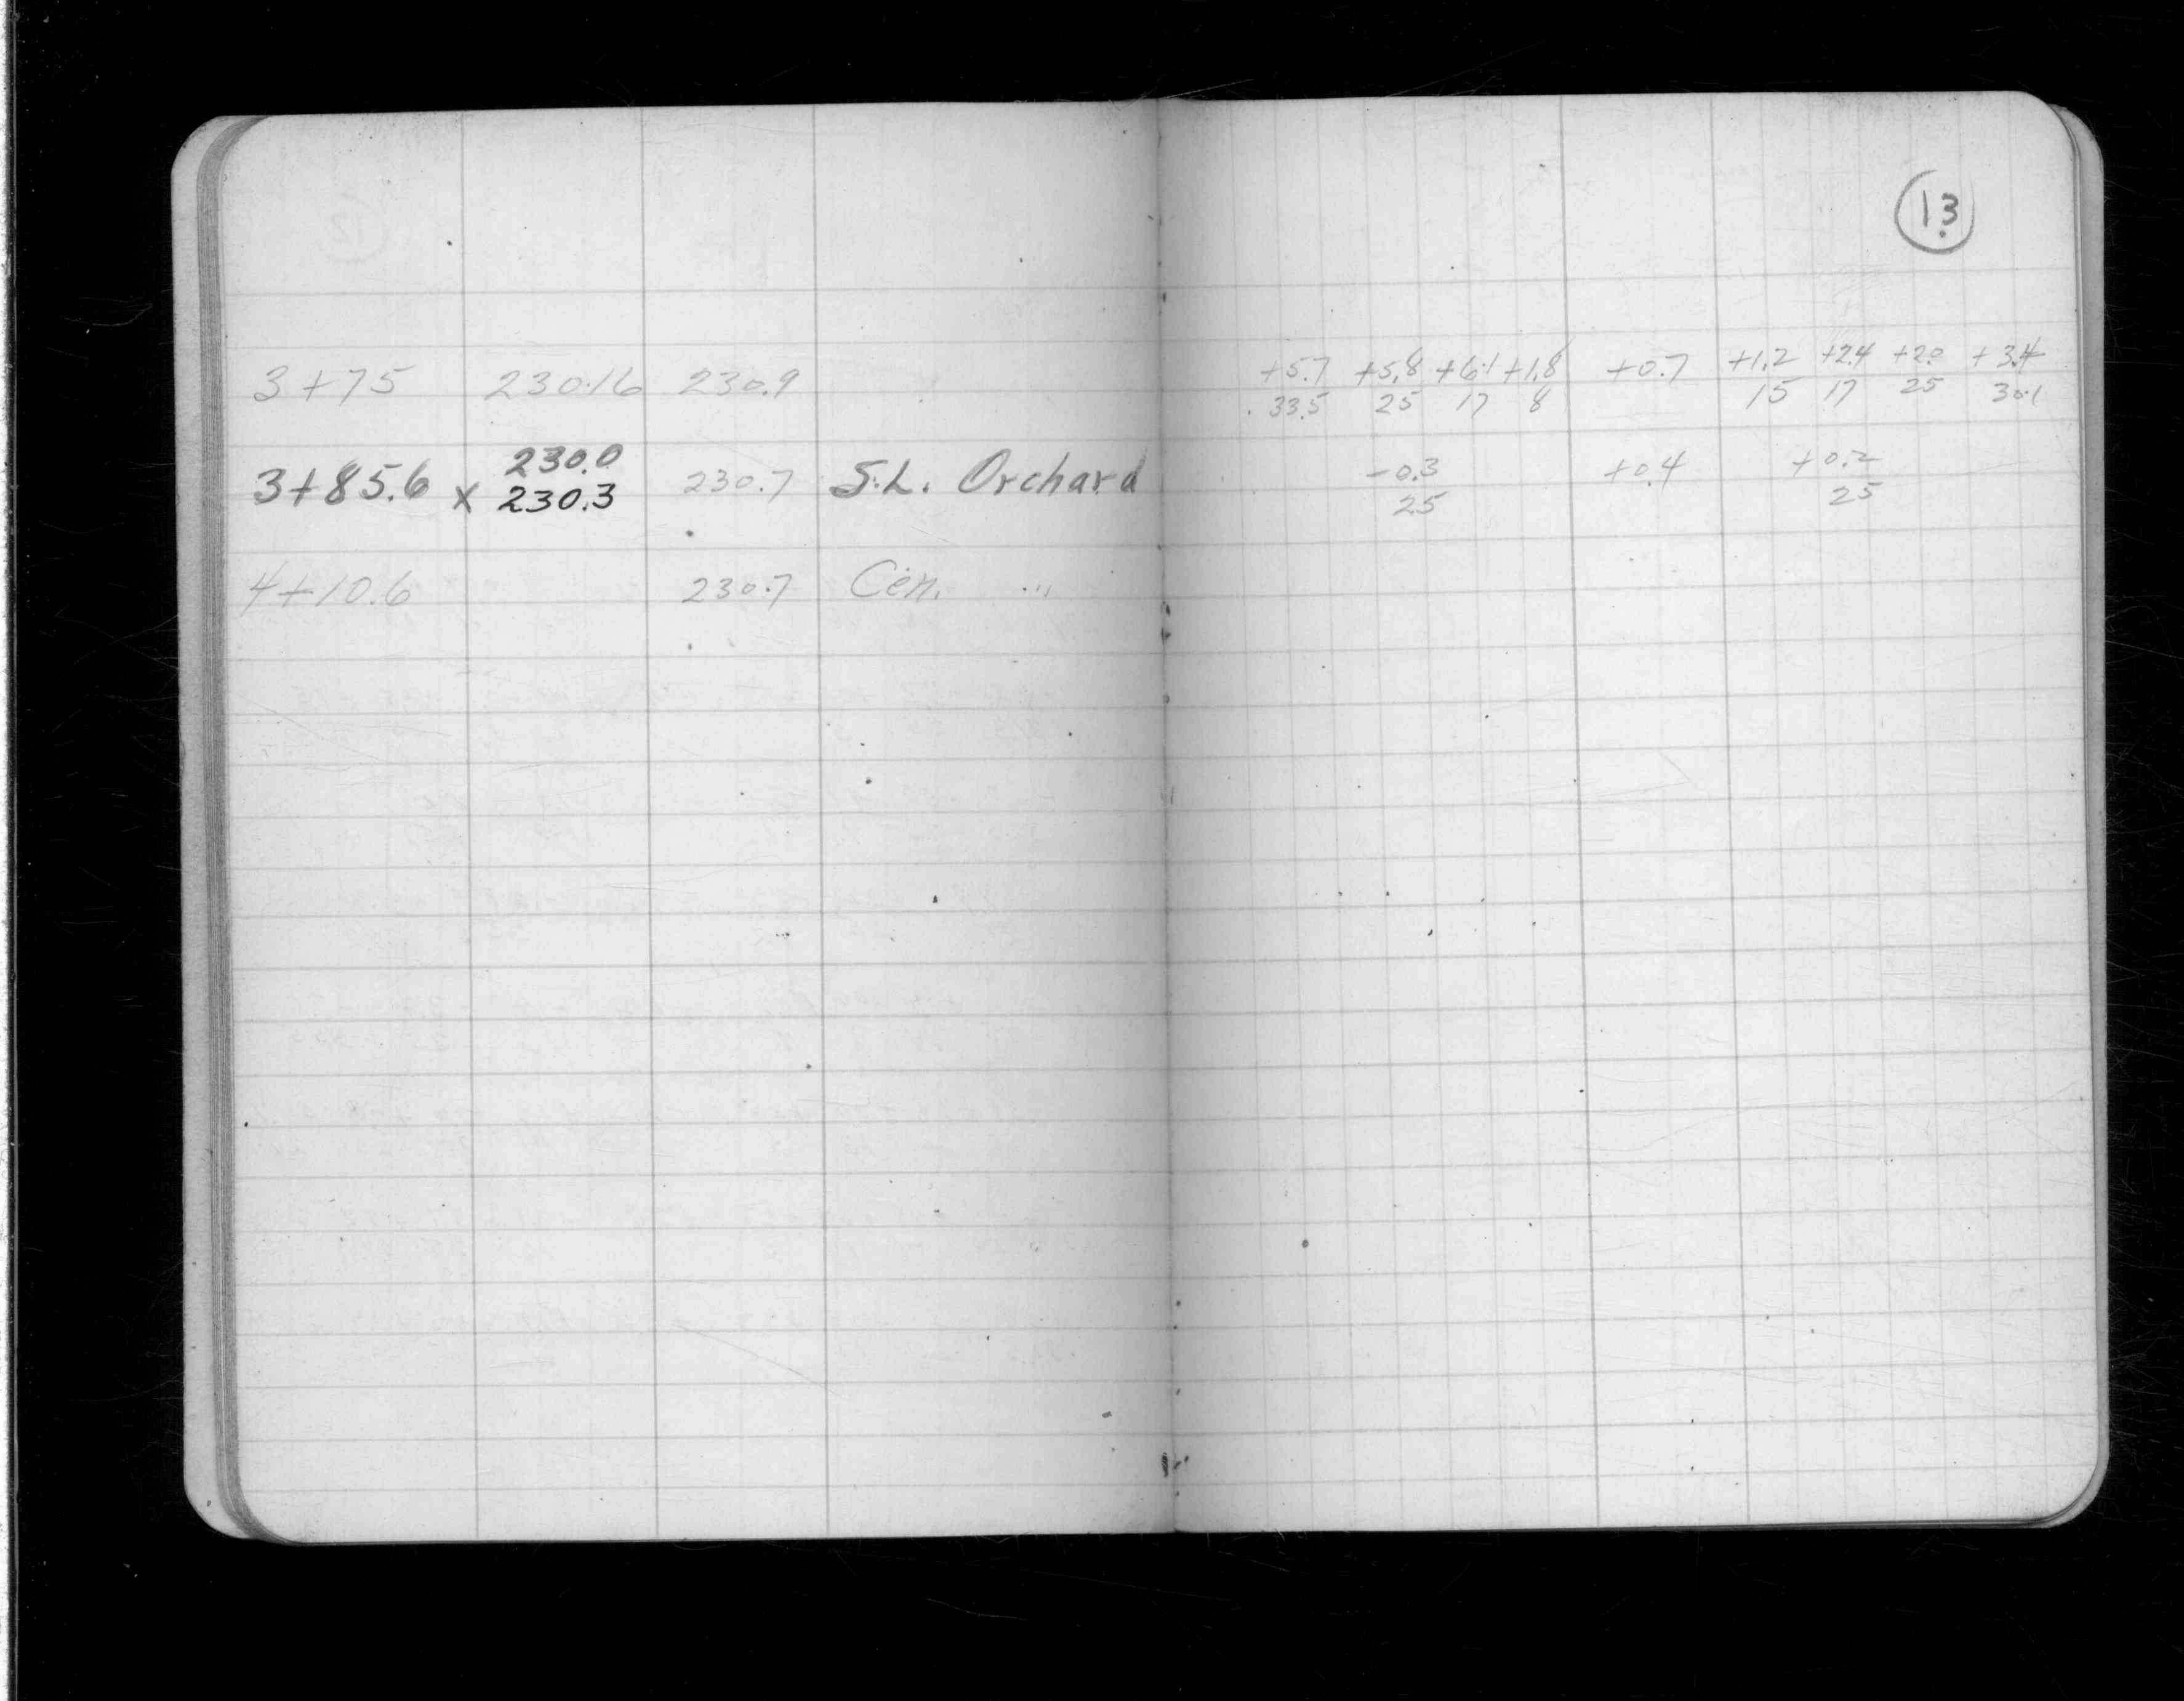 13
3+75 230.16 230.9 +5.7 +5.8 +6.1 +1.8 +0.7 +1.2 +2.4 +2.0 +3.4
33.5 25 17 8 15 17 25 30.1
230.0
3+85.6 x 230.3 230.7 S.L. Orchard -0.3 +0.4 +0.2
25 25
4+10.6 230.7 Cen. "